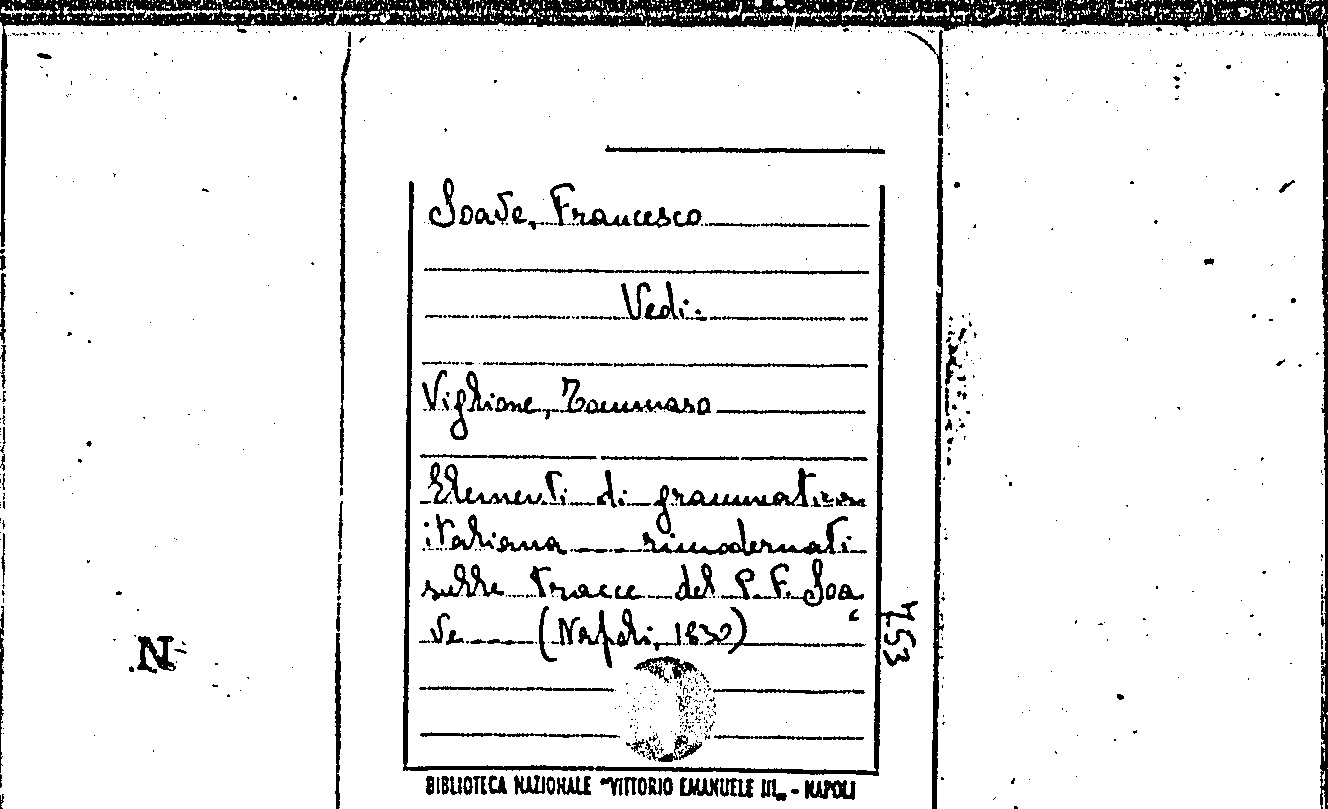 Soave, Francesco
Vedi:
Viglione, Tommaso
Elementi di grammatica
italiana ... rimodernati
sulle tracce del P. F. Soa
ve ... (Napoli, 1830)
753
N
BIBLIOTECA NAZIONALE "VITTORIO EMANUELE III„ - NAPOLI